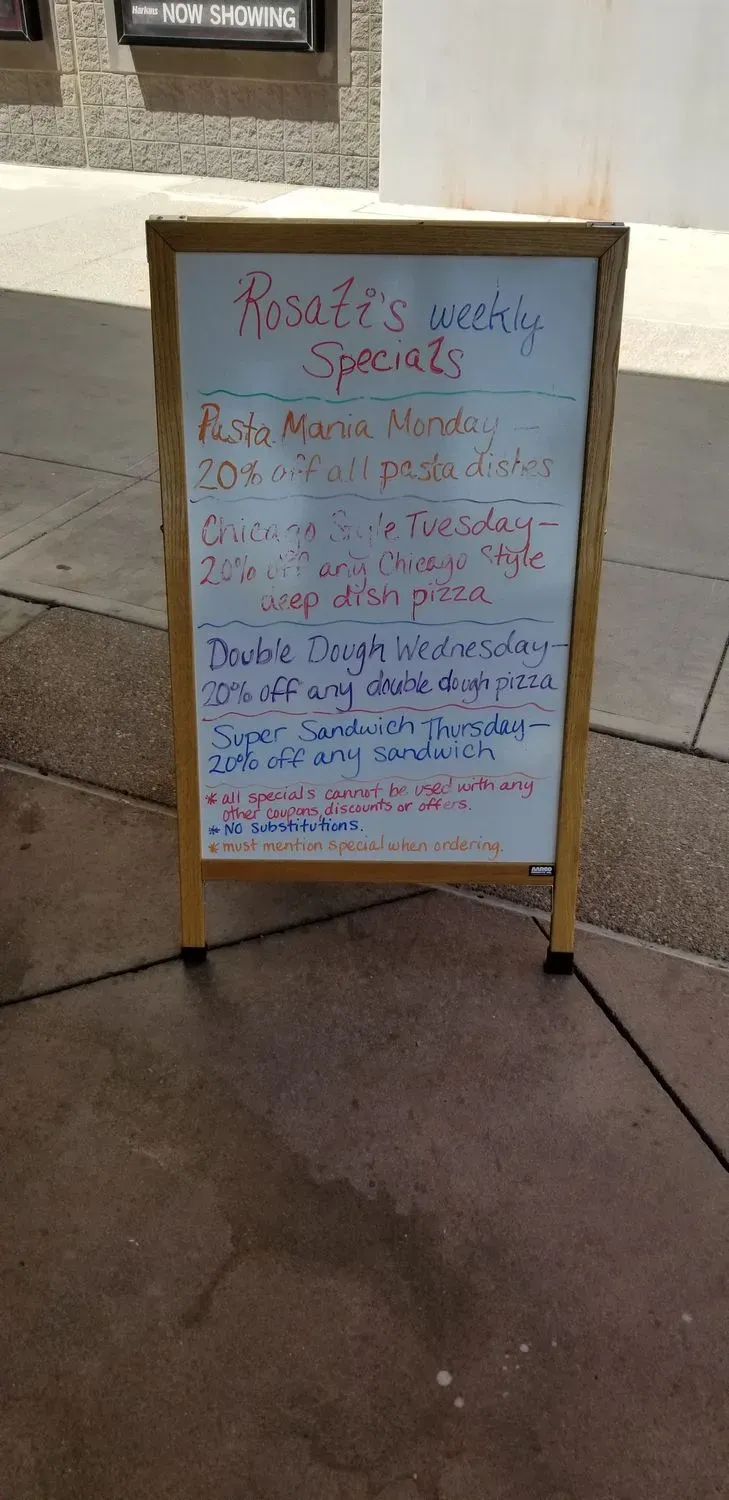 Harkins NOW SHOWING
Rosati's weekly
Specials
Pasta Mania Monday -
20% off all pasta dishes
Chicago Style Tuesday-
20% off any Chicago Style
deep dish pizza
Double Dough Wednesday-
20% off any double dough pizza
Super Sandwich Thursday-
20% off any sandwich
* all specials cannot be used with any
other coupons, discounts or offers.
* NO Substitutions.
* must mention special when ordering.
AARCO